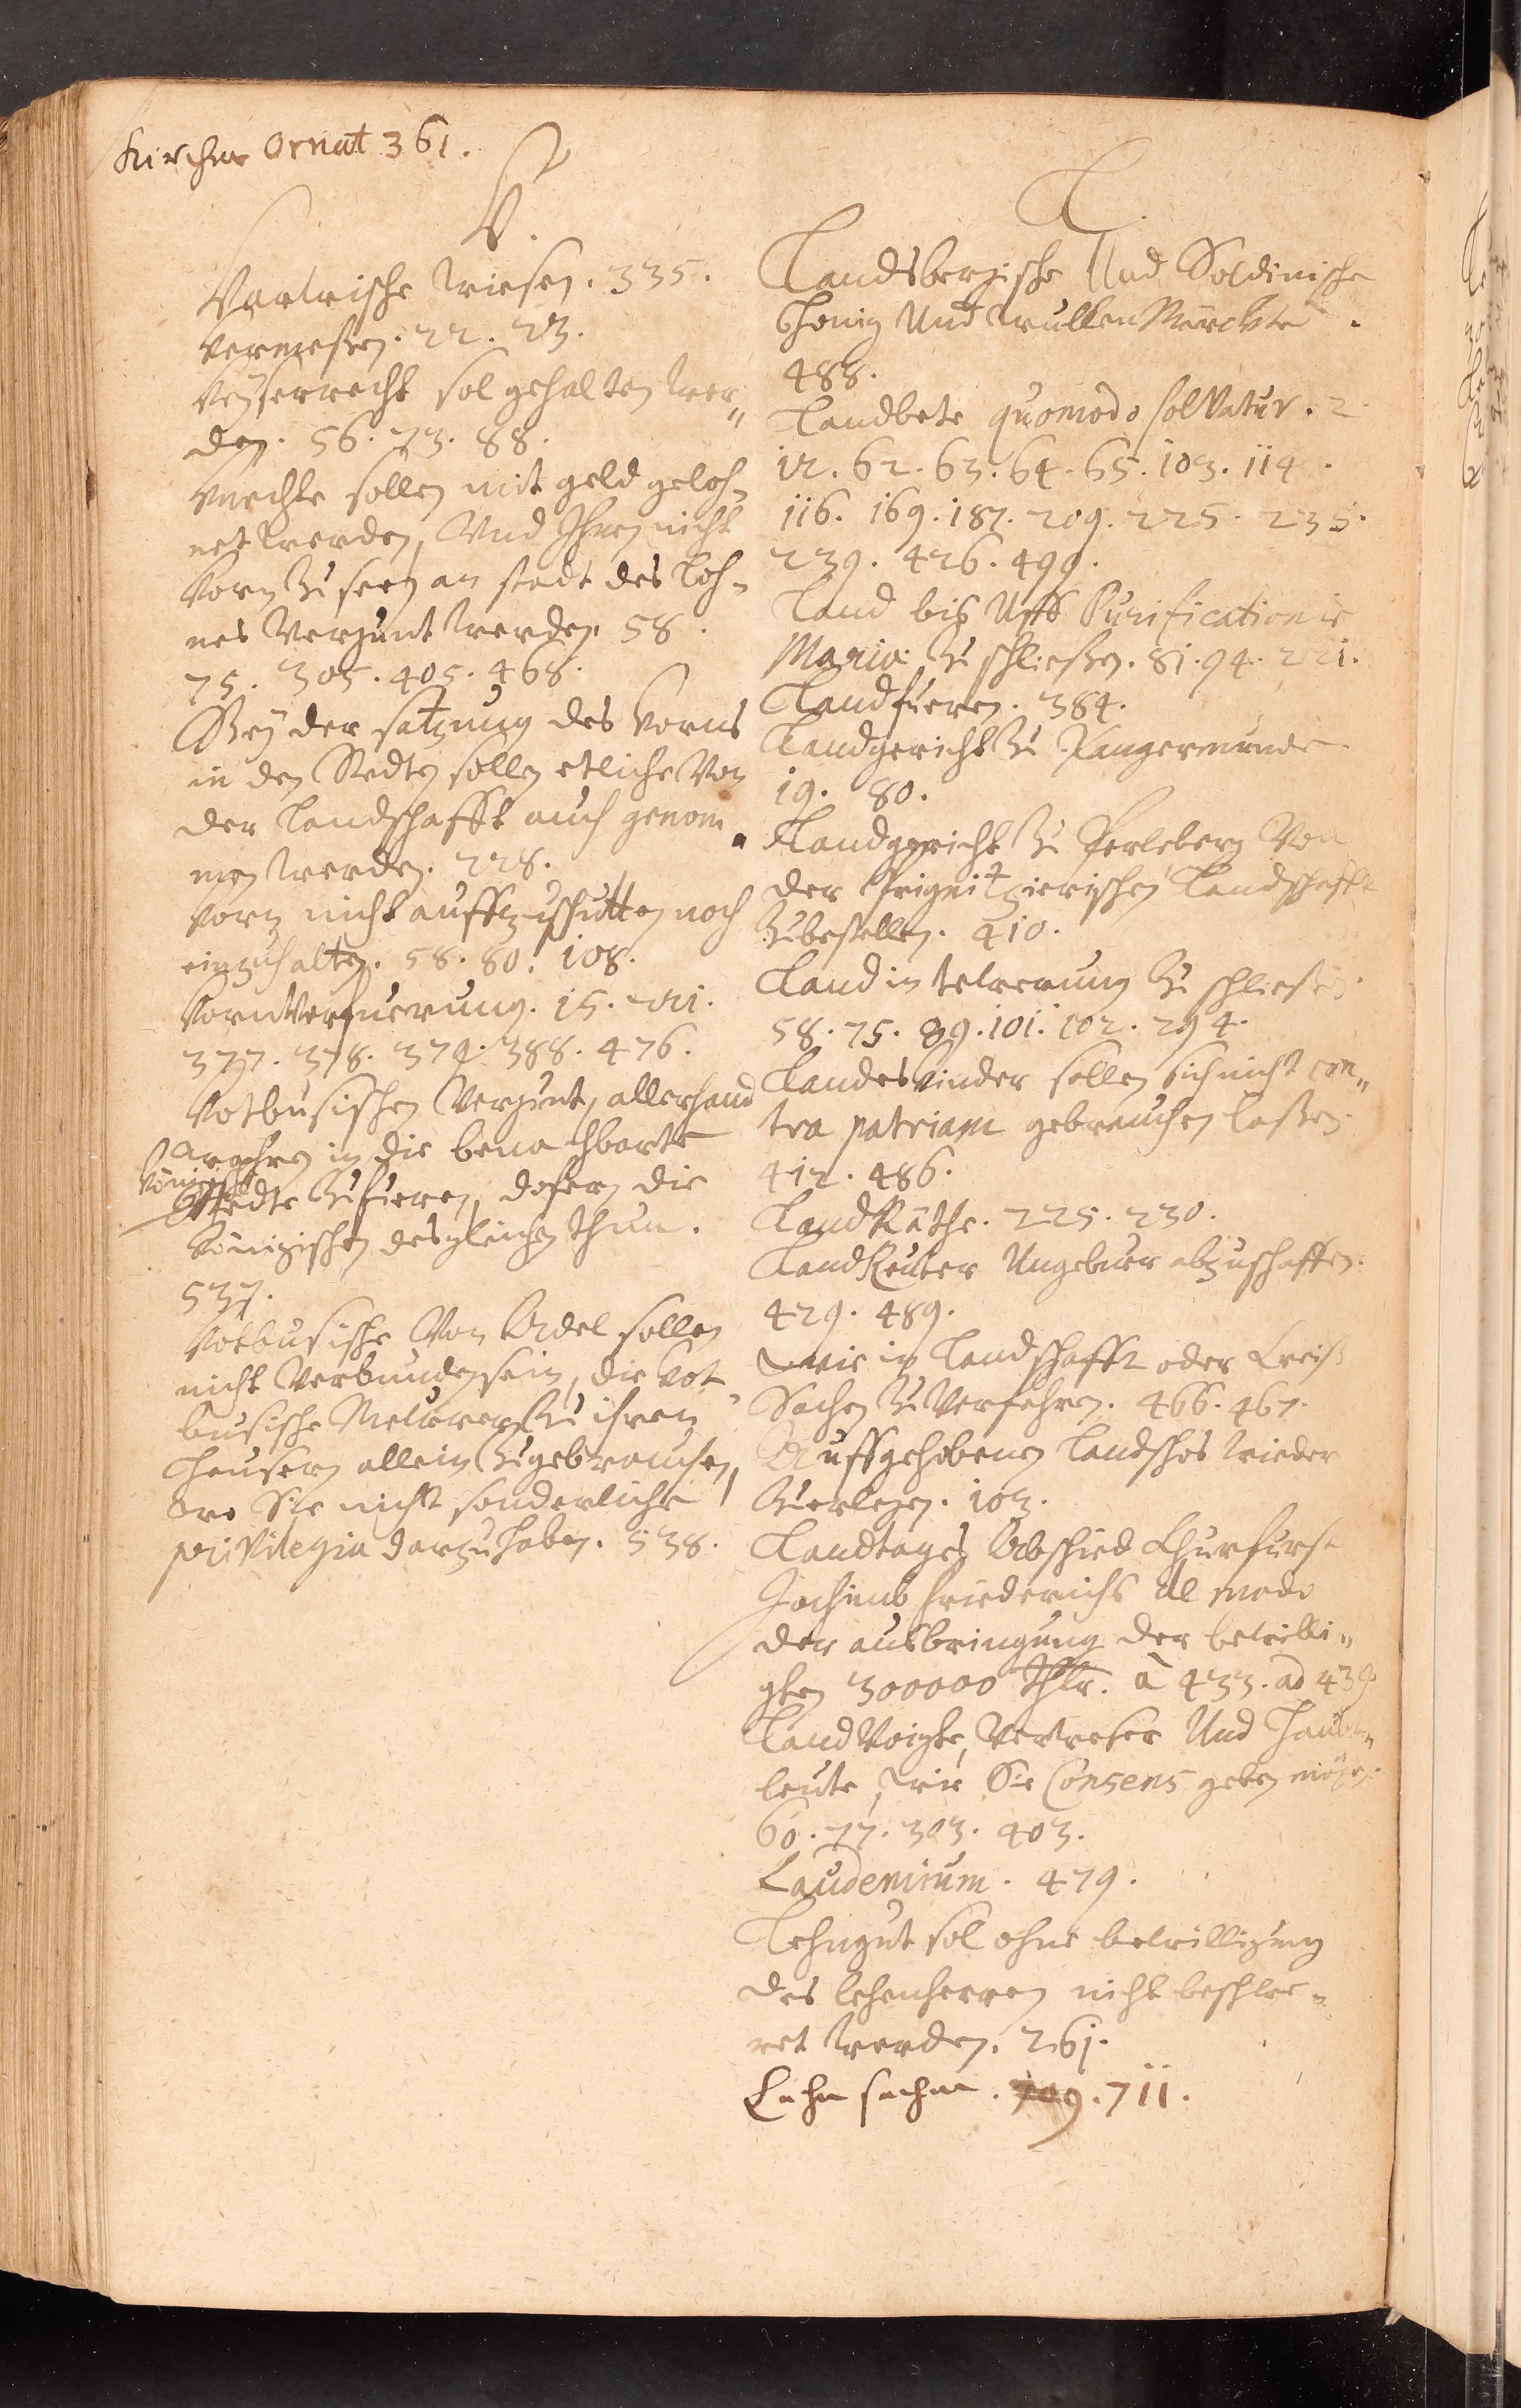 Kirchen Ornat 361.
K.
Kartzische wiesen. 335.
Kermeßen. 22. 23.
Keyserrecht sol gehalten wer„
den. 56. 73. 88.
Knechte sollen mit geld geloh„
net werden, Und Ihnen nicht
Korn Zu seen an stadt des loh„
nes Vergunt werden. 58.
75. 305. 405. 468.
Bey der satzung des Korns
in den Stedten sollen etliche Von
der Landschafft auch genom„
men werden. 228.
Korn nicht auffzuschutten noch
einzuhalten. 58. 80. 108.
Kornverfuerung. 15. 221.
377. 378. 379. 388. 476.
Kotbusischen Vergunt, allerhand
wahren in die benachbarte
Königische
Stedte Zufueren, dofern die
Königischen desgleichen thun.
537.
Kotbusische Von Adel sollen
nicht Verbunden sein, die Kot„
busische Meurer Zu ihren
heusern allein Zugebrauchen,
wo Sie nicht sonderliche
privilegia darzu haben. 538.
L.
Landsbergische Und Soldinische
honig Und wullen Märckte.
488.
Landbete quomodo solvatur. 2.
12. 62. 63. 64. 65. 103. 114.
116. 169. 187. 209. 225. 235.
239. 426. 499.
Land bis Uffs Purificationis
Mariæ Zu schließen. 81. 94. 221.
Landfueren. 384.
Landgericht Zu Tangermunde.
19. 80.
Landgericht Zu Perleberg Von
der Prignitzierischen Landschafft
Zubestellen. 410.
Land in tewrung Zu schließen.
58. 75. 89. 101. 102. 294.
Landeskinder sollen sich nicht con„
tra patriam gebrauchen laßen.
412. 486.
LandRäthe. 225. 230.
LandReuter Ungebuer abzuschaffen.
429. 489.
wie in Landschafft oder Creiß
Sachen Zu Verfahren. 466. 467.
Auffgehobenen Landschos wieder
Zuerlegen. 103.
Landtages Abschied Churfurst
Jochimb Friederichs de modo
der ausbringung der bewilli„
gten 300000 thlr. à 433. ad 439
LandVoigte, Verweser Und Haubt„
leute, wie Sie Consens geben mögen.
60. 77. 303. 403.
Laudemium. 479.
Lehngut sol ohne bewilligung
des lehenherren nicht beschwe„
ret werden. 261.
Lehn sachen. 709. 711.